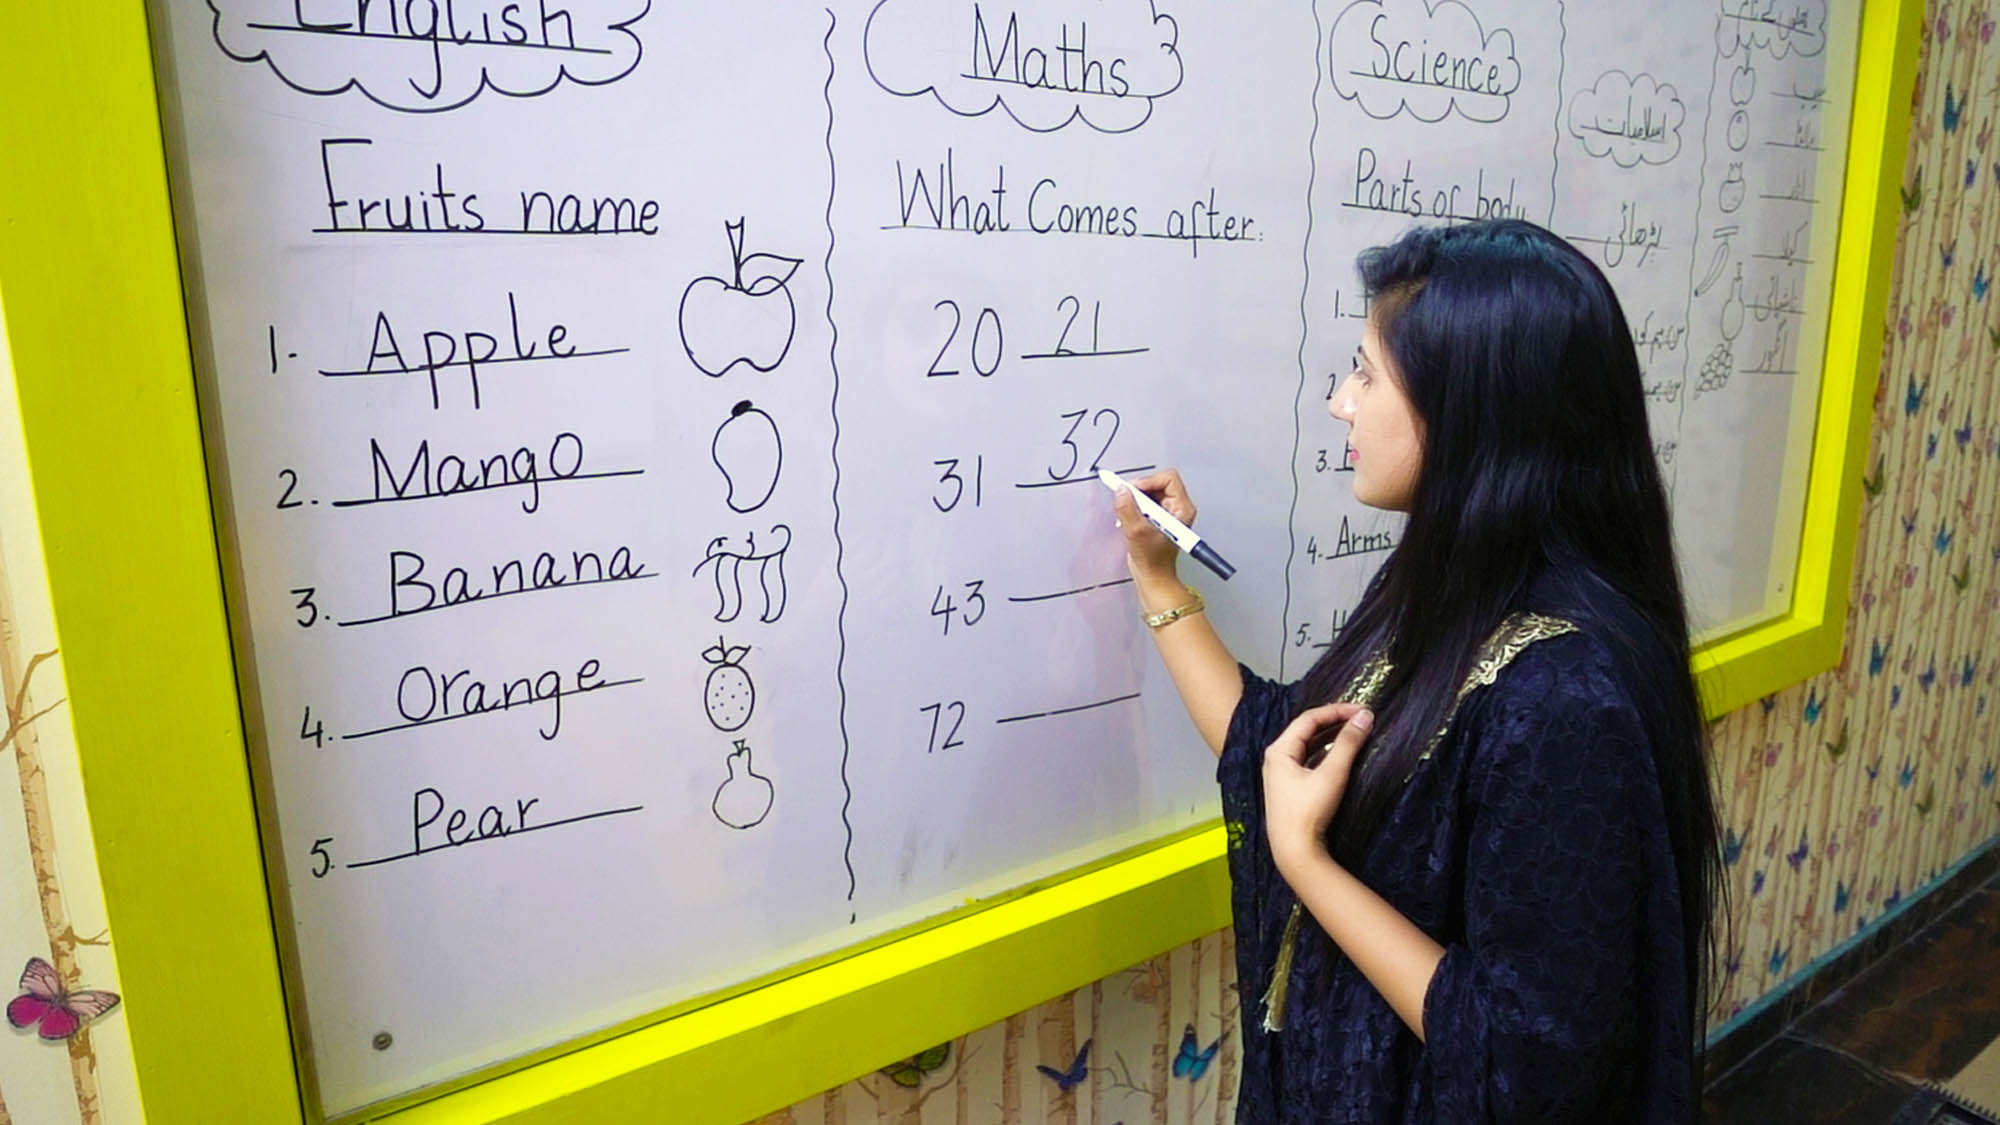 English
Fruits name
1. Apple
2. Mango
3. Banana
4. Orange
5. Pear
Maths
What Comes after:
20 21
31 32
43
72
Science
Parts of body
1.
2
3.
4. Arms
5. H
اسلامیات
پڑھائی
سیب
کیلا
ناشپاتی
انگور